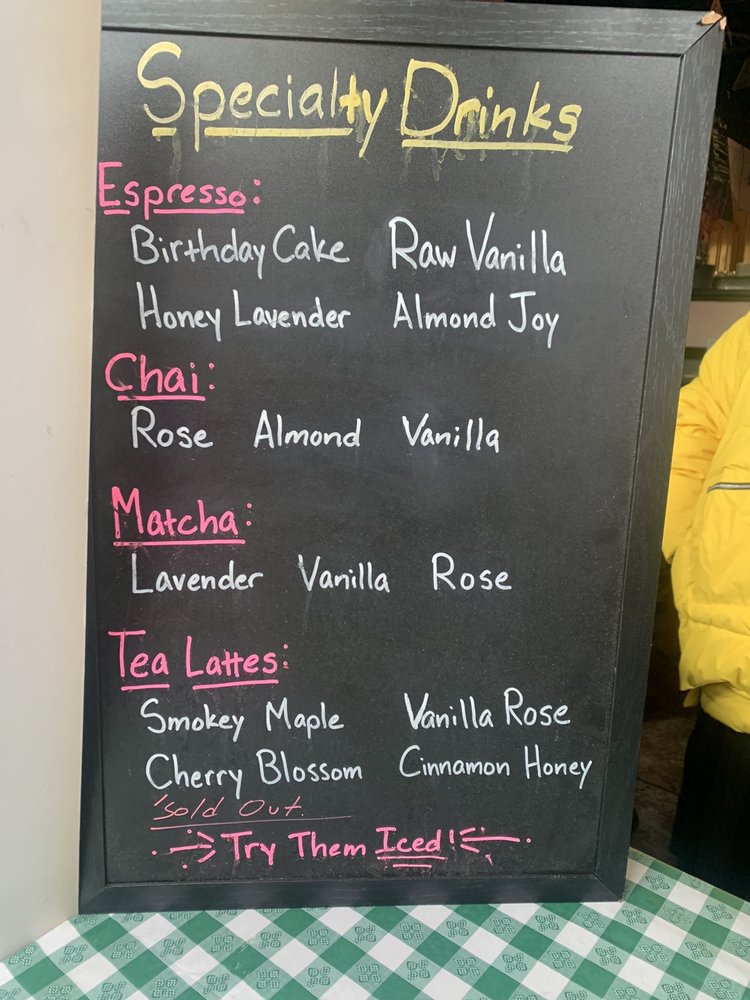 Specialty Drinks
Espresso:
Birthday Cake Raw Vanilla
Honey Lavender Almond Joy
Chai:
Rose Almond Vanilla
Matcha:
Lavender Vanilla Rose
Tea Lattes:
Smokey Maple Vanilla Rose
Cherry Blossom Cinnamon Honey
Sold Out
Try Them Iced!